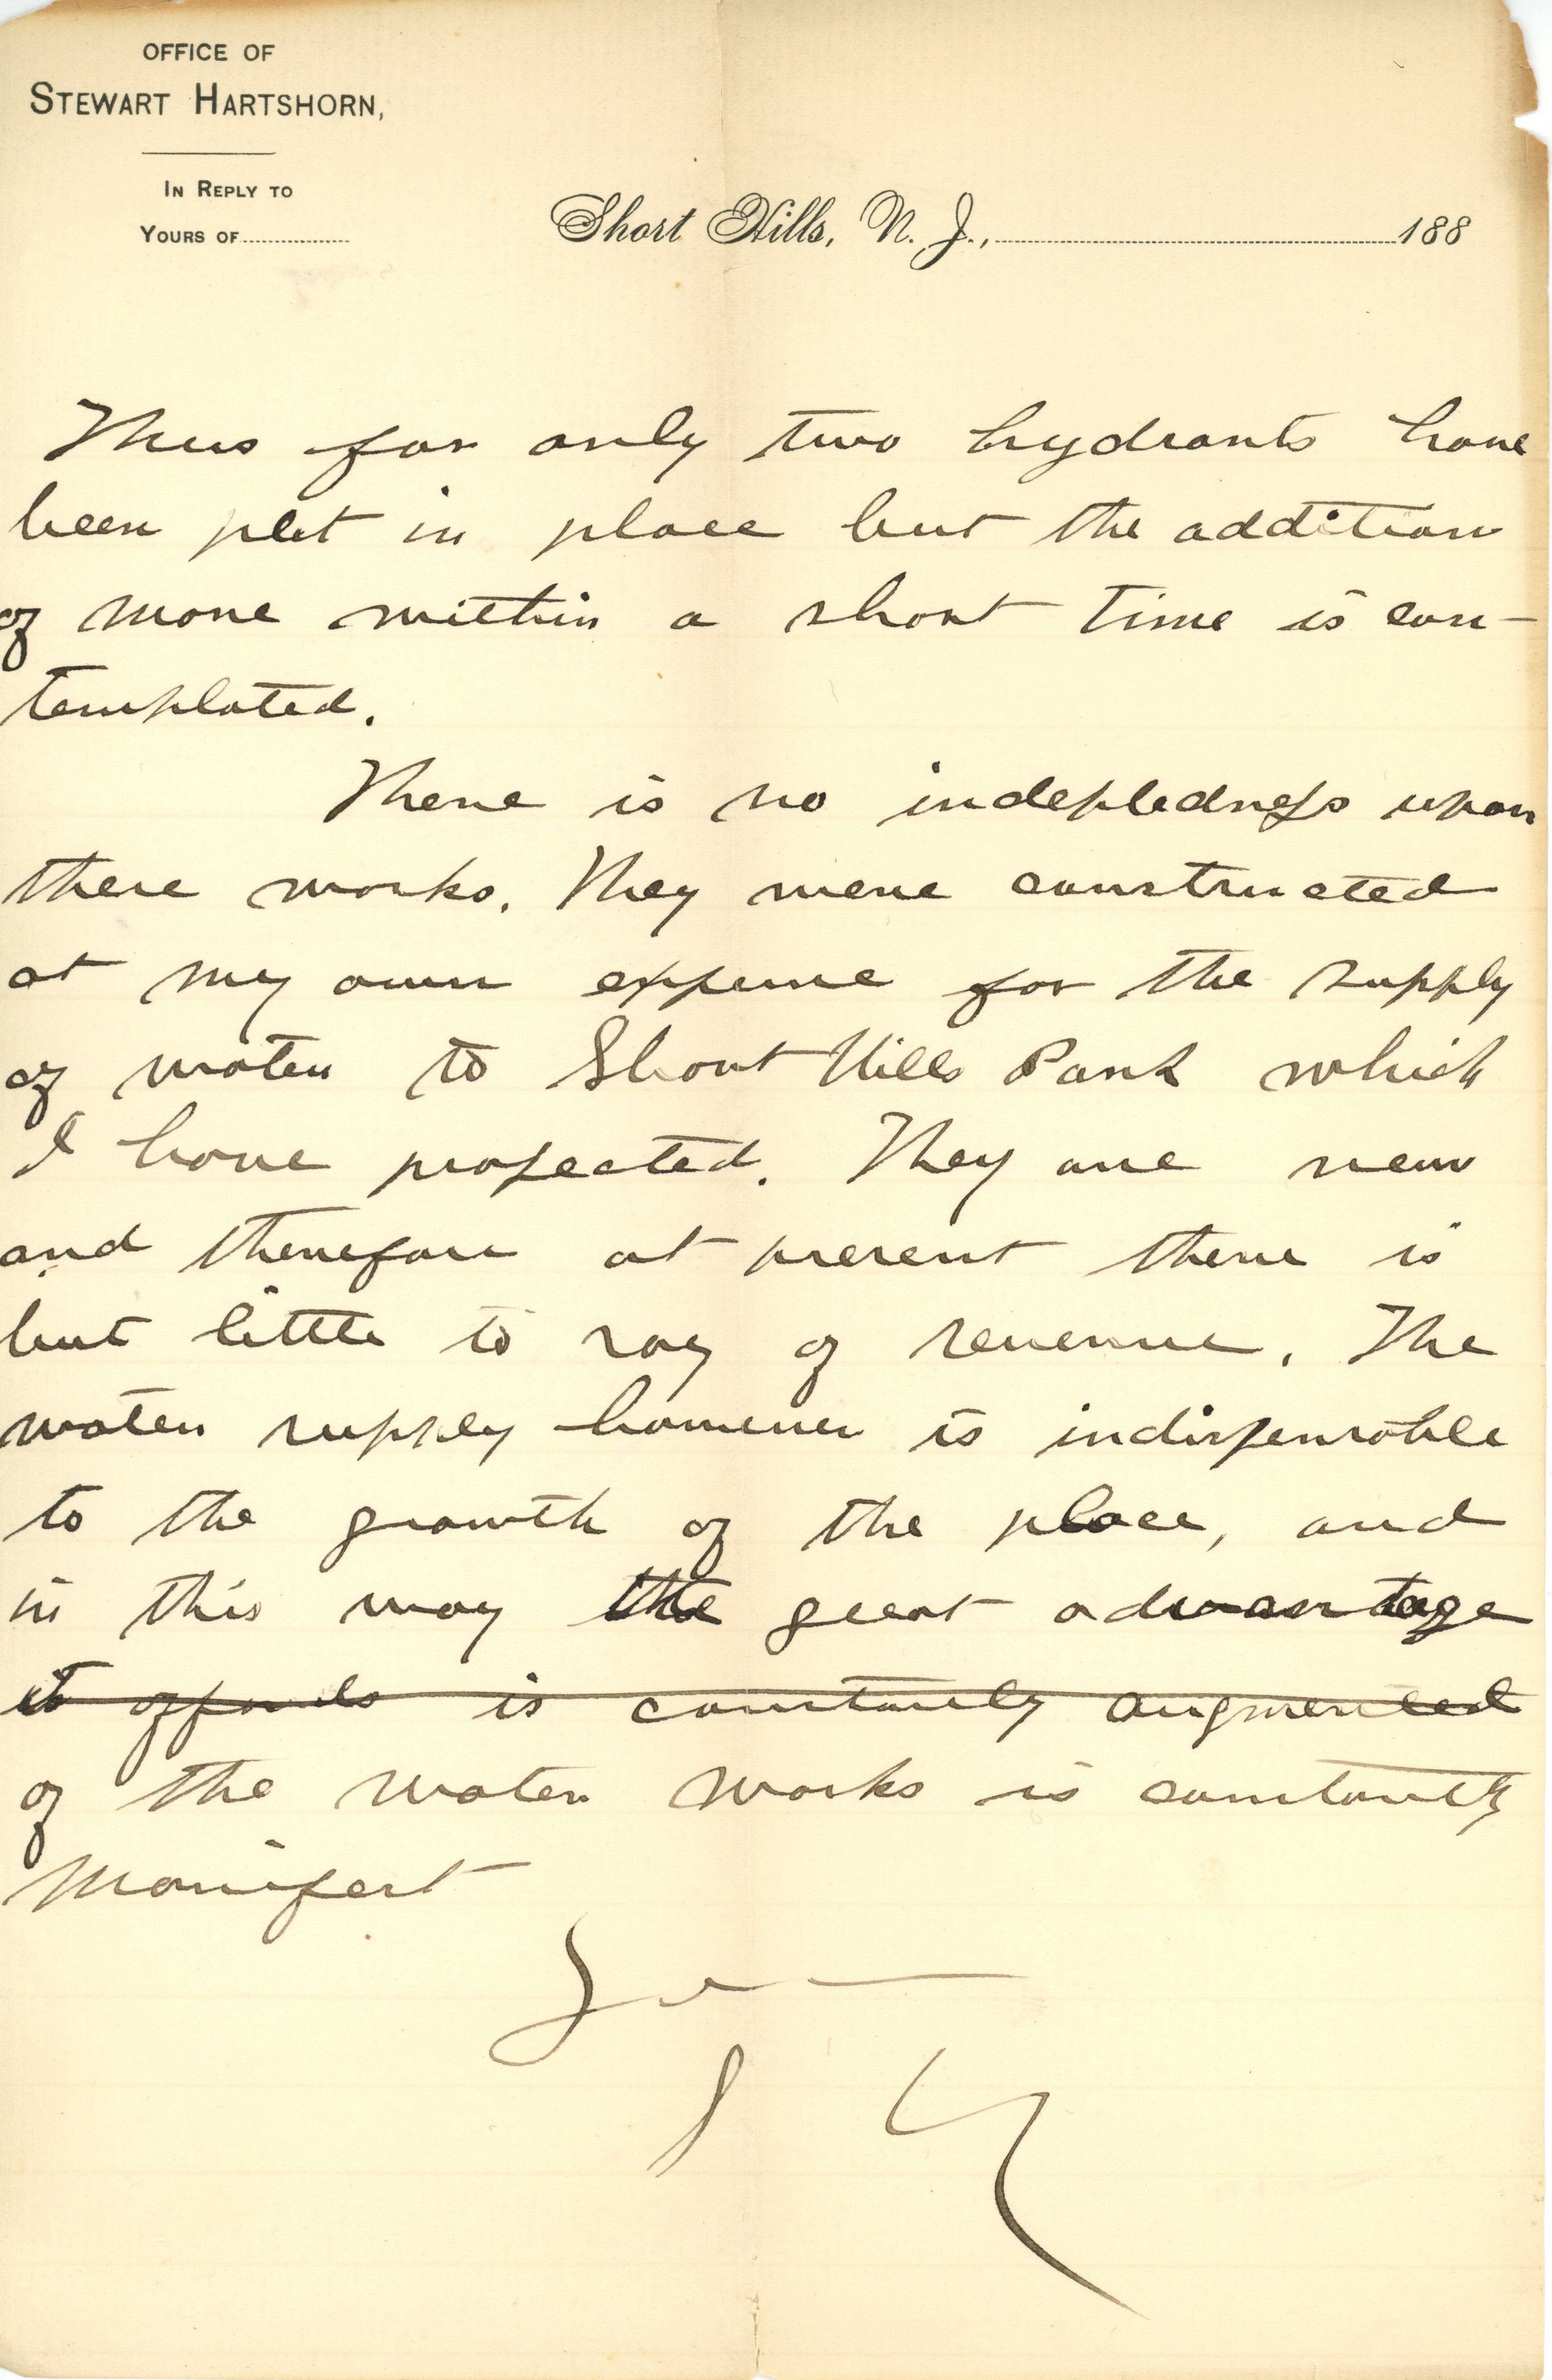 OFFICE OF
STEWART HARTSHORN,
IN REPLY TO
YOURS OF................
Short Hills, N. J.,................188
Thus far only two hydrants have
been put in place but the addition
of more within a short time is con-
templated.
There is no indeptedness upon
these works. They were constructed
at my own expense for the supply
of water to Short Hills Park which
I have projected. They are new
and therefore at present there is
but little to say of revenue. The
water supply however is indispensable
to the growth of the place, and
in this way the great advantage
it affords is constantly augmented
of the water works is constantly
manifest
S H